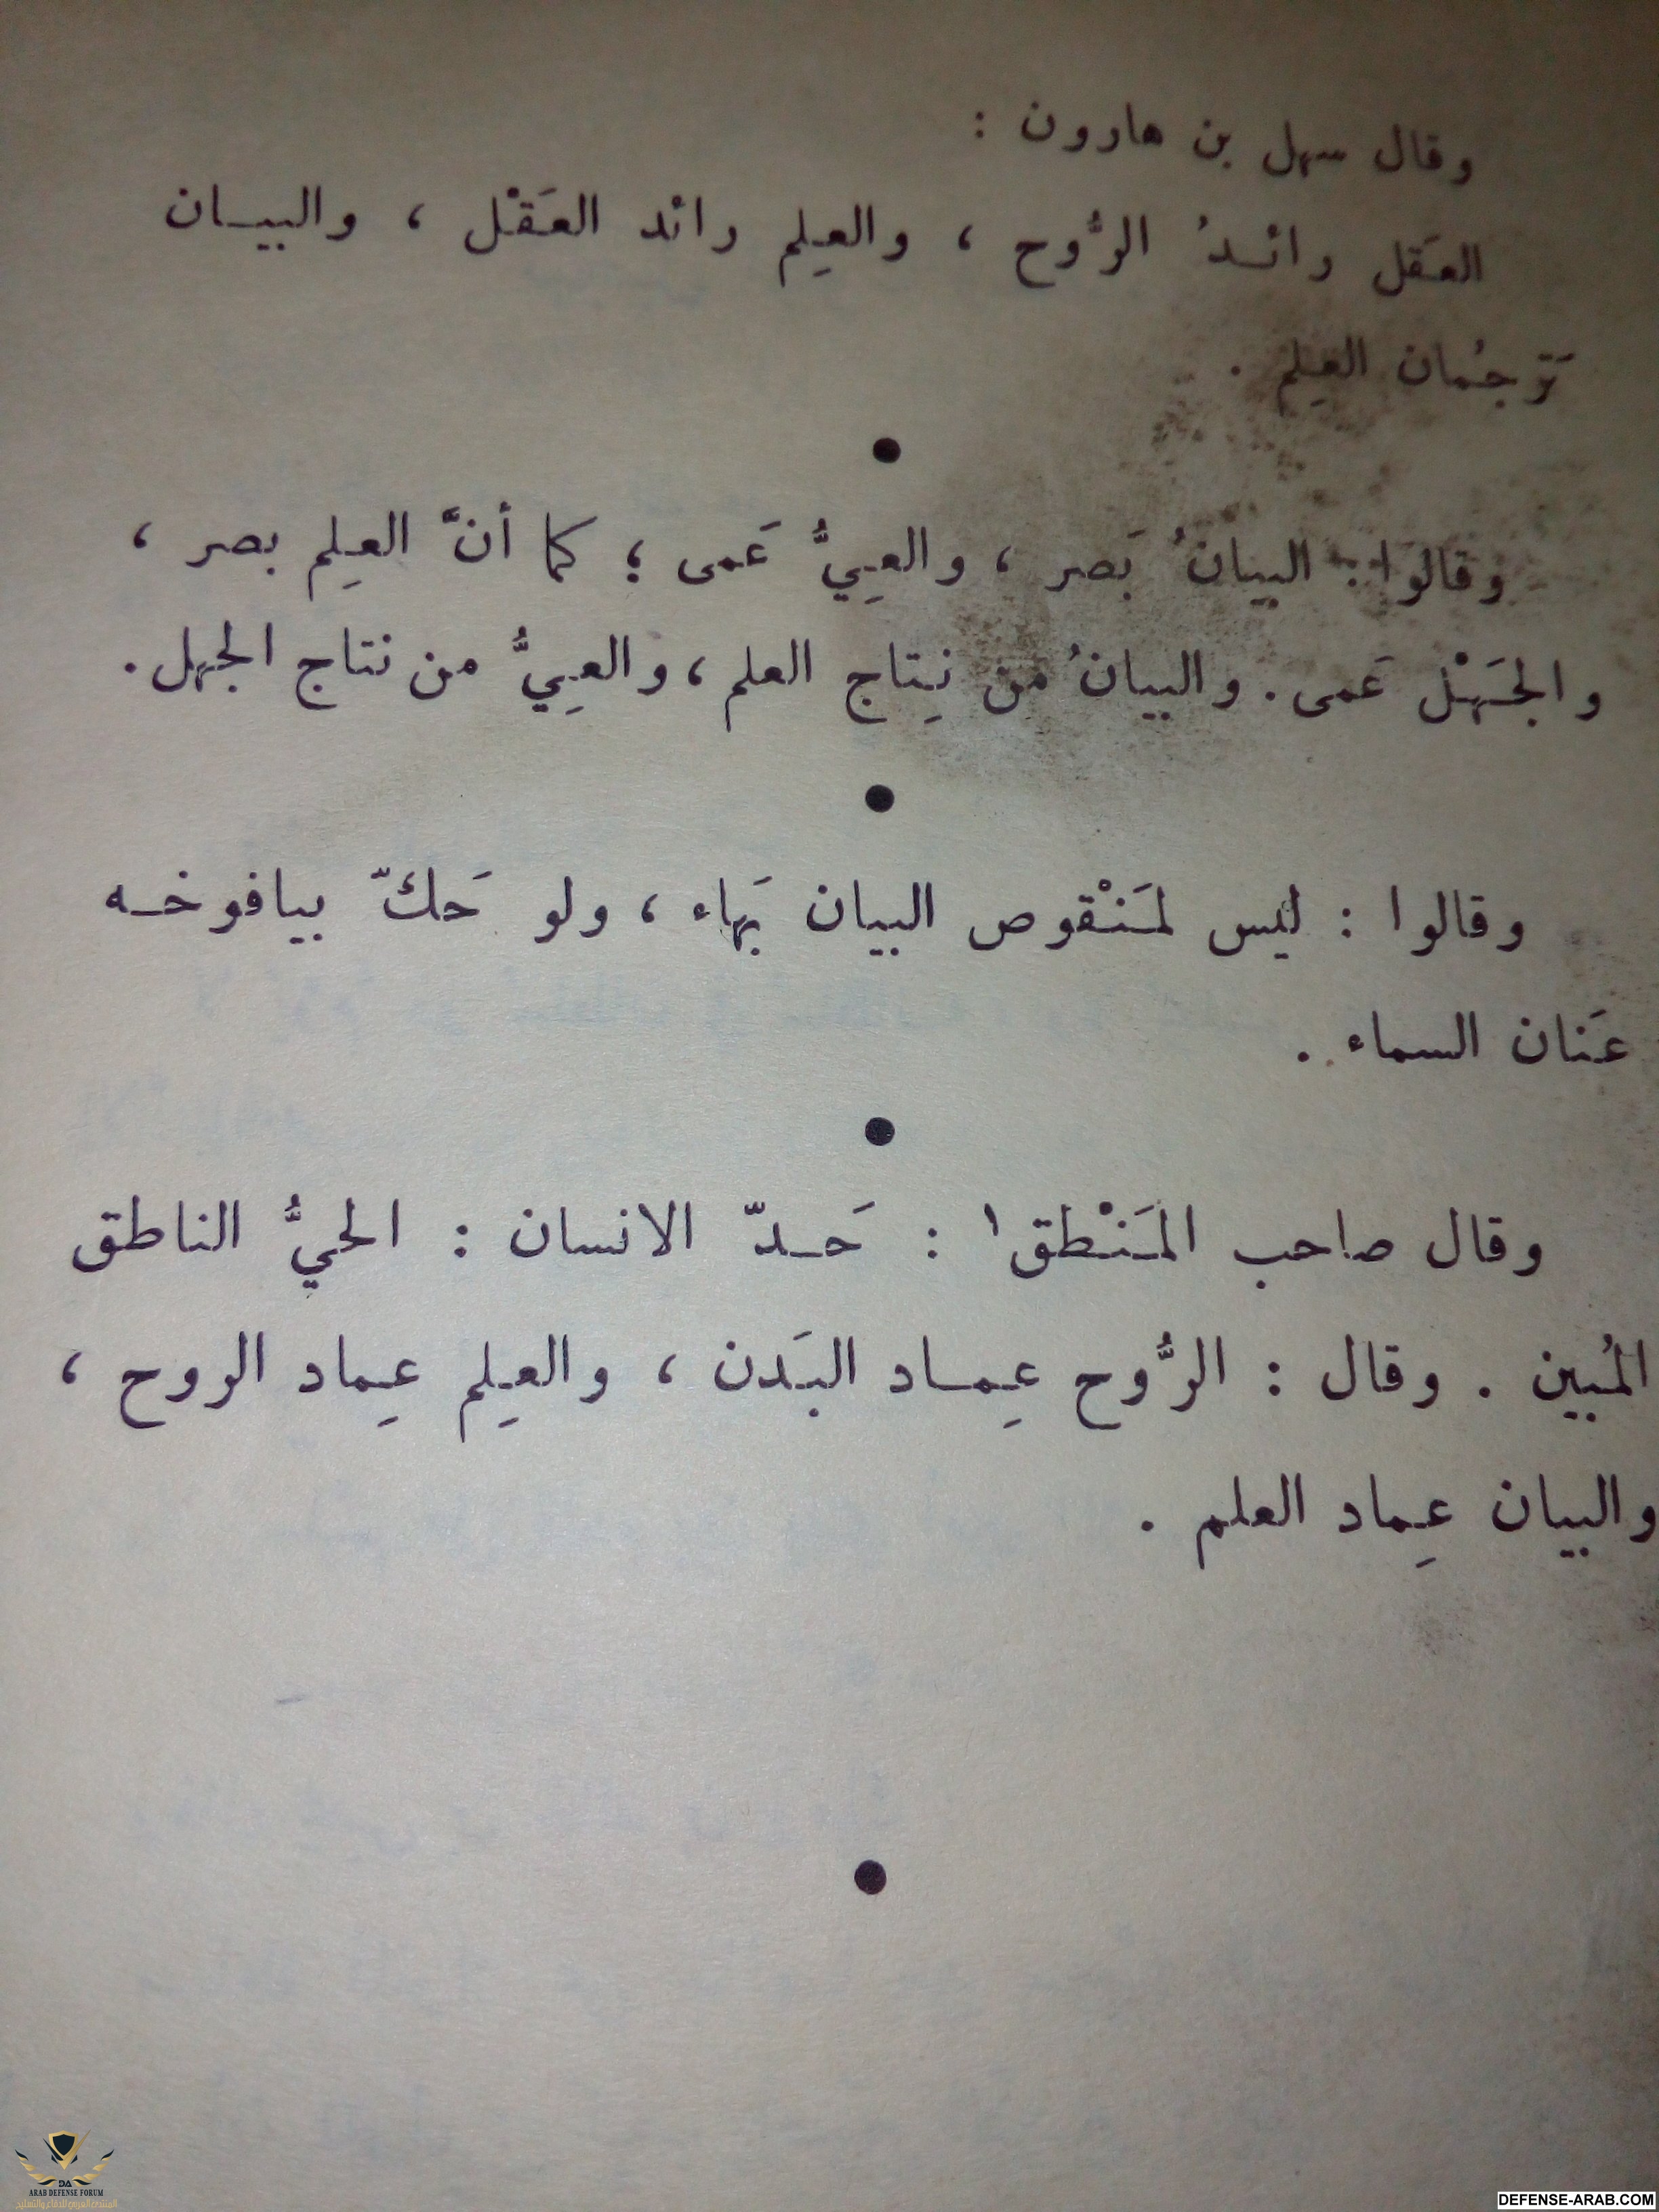 وقال سهل بن هارون :
العَقل رائدُ الرُّوح ، والعِلم رائد العَقْل ، والبيان
تَرجُمان العِلم .
●
وقالوا : البيانُ بَصر ، والعِيُّ عَمى ؛ كما أنَّ العِلم بصر ،
والجَهْل عَمى . والبيانُ من نِتاج العلم ، والعِيُّ من نتاج الجهل .
●
وقالوا : ليس لمَنْقوص البيان بَهاء ، ولو حَكّ بيافوخه
عَنان السماء .
●
وقال صاحب المَنْطق١ : حَدّ الانسان : الحيُّ الناطق
المُبين . وقال : الرُّوح عِماد البَدن ، والعِلم عِماد الروح ،
والبيان عِماد العلم .
●
ARAB DEFENSE FORUM
المنتدى العربي للدفاع والتسليح
DEFENSE-ARAB.COM